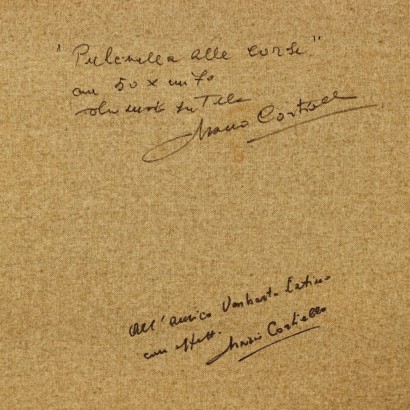 "Pulcinella alle corse"
cm 50 x cm 70
olio su Tela
Mario Cortiello
All'amico Umberto Latino
con affetto.
Mario Cortiello